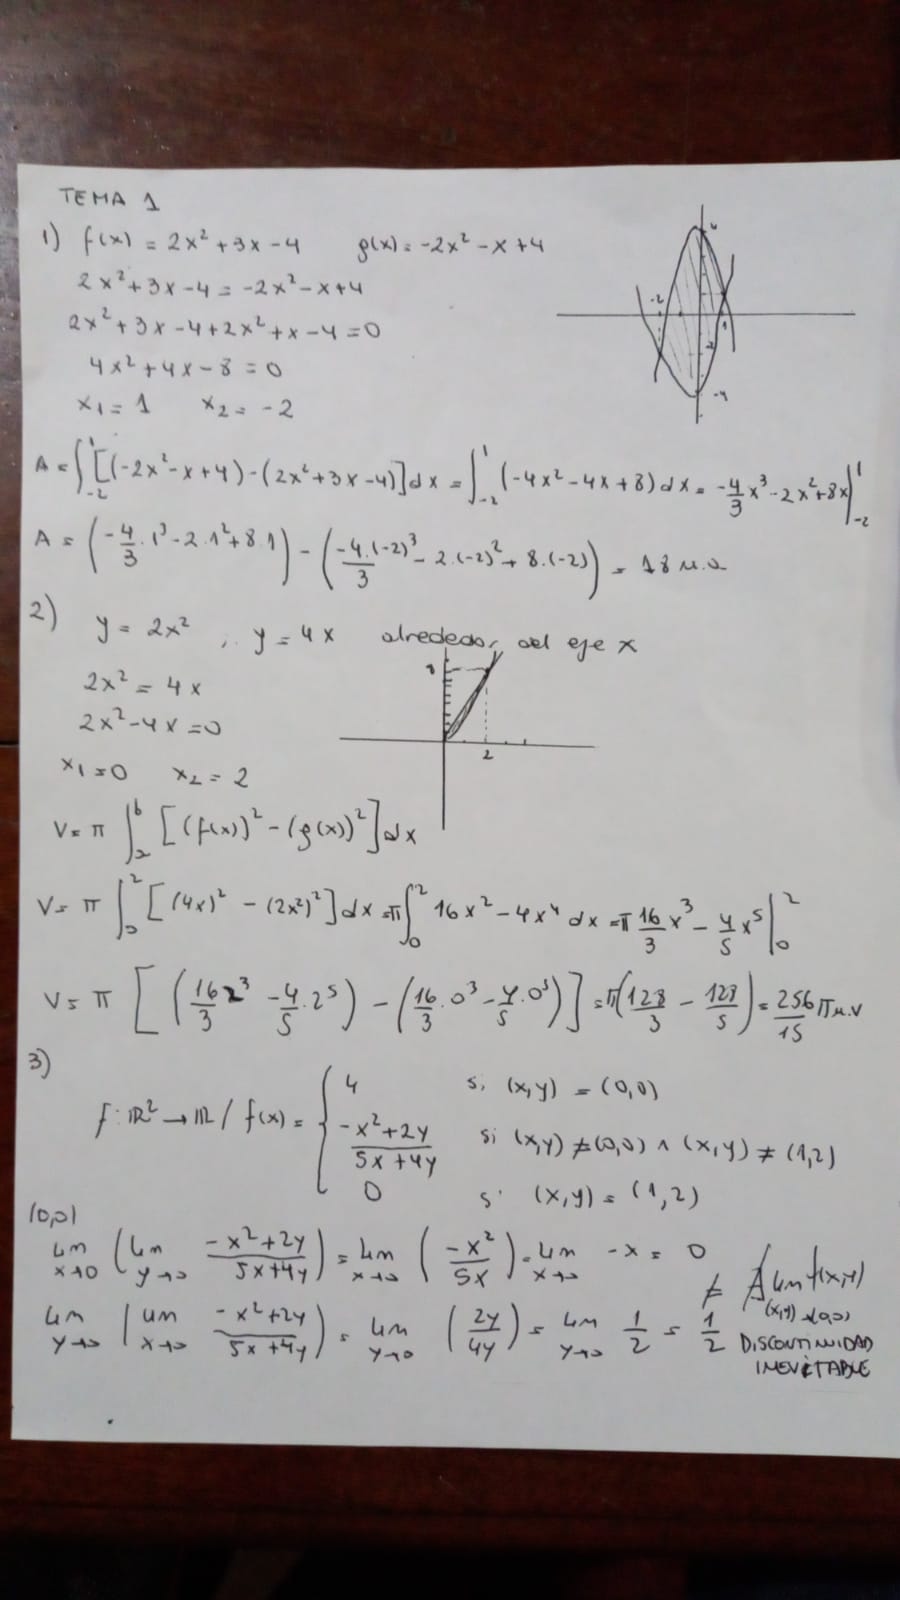 TEMA 1
1) f(x) = 2x² + 3x - 4   g(x) = -2x² - x + 4
2x² + 3x - 4 = -2x² - x + 4
2x² + 3x - 4 + 2x² + x - 4 = 0
4x² + 4x - 8 = 0
x₁ = 1   x₂ = -2
4
-2
1
-4
A = ∫₋₂¹ [(-2x² - x + 4) - (2x² + 3x - 4)] dx = ∫₋₂¹ (-4x² - 4x + 8) dx = -4/3 x³ - 2x² + 8x |₋₂¹
A = (-4/3 · 1³ - 2 · 1² + 8 · 1) - (-4 · (-2)³/3 - 2 · (-2)² + 8 · (-2)) = 18 u.a
2) y = 2x² ; y = 4x alrededor del eje x
2x² = 4x
2x² - 4x = 0
x₁ = 0   x₂ = 2
8
2
V = π ∫ₐᵇ [(f(x))² - (g(x))²] dx
V = π ∫₀² [(4x)² - (2x²)²] dx = π ∫₀² 16x² - 4x⁴ dx = π 16/3 x³ - 4/5 x⁵ |₀²
V = π [(16/3 2³ - 4/5 · 2⁵) - (16/3 · 0³ - 4/5 · 0⁵)] = π (128/3 - 128/5) = 256/15 π u.v
3)
f: ℝ² → ℝ / f(x) = {
4   si (x,y) = (0,0)
(-x² + 2y)/(5x + 4y)   si (x,y) ≠ (0,0) ∧ (x,y) ≠ (1,2)
0   si (x,y) = (1,2)
(0,0)
Lim x→0 (Lim y→0 (-x² + 2y)/(5x + 4y)) = Lim x→0 (-x²/5x) = Lim x→0 -x = 0
≠ ∄ Lim f(x,y) (x,y)→(0,0)
Lim y→0 (Lim x→0 (-x² + 2y)/(5x + 4y)) = Lim y→0 (2y/4y) = Lim y→0 1/2 = 1/2
DISCONTINUIDAD
INEVITABLE